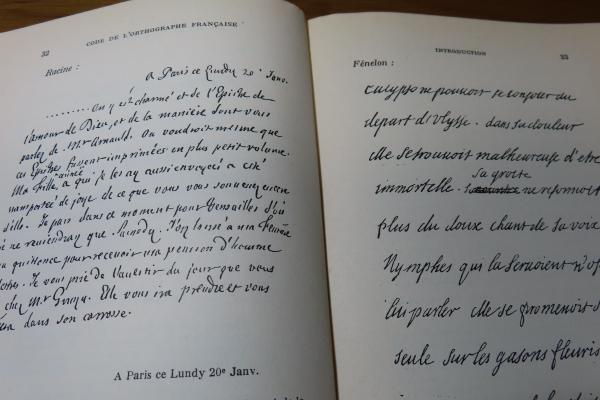 32
CODE DE L'ORTHOGRAPHE FRANÇAISE
Racine :
A Paris ce Lundy 20e Janv.
......... On y est charmé et de l'Epistre de
l'amour de Dieu, et de la maniere dont vous
parlez de Mr Arnauld. On voudroit mesme que
ces Epistres fussent imprimées en plus petit volume.
Ma fille aisnée, à qui je les ay aussi envoyées a esté
transportée de joye de ce que vous vous souvenez encore
d'elle. Je pars dans ce moment pour Versailles d'où
je ne reviendray que Samedy. J'ay laissé à ma femme
ma quittance pour recevoir ma pension d'homme
Je vous prie de l'avertir du jour que vous
chez Mr Elle vous ira prendre et vous
dans son carrosse.
A Paris ce Lundy 20e Janv.
INTRODUCTION
33
Fénelon :
Calypso ne pouvoit se consoler du
depart d'Ulysse. dans sa douleur
elle se trouvoit malheureuse d'etre
immortelle. sa grotte ne resonnoit
plus du doux chant de sa voix
Nymphes qui la servoient n'os
lui parler elle se promenoit s
seule sur les gasons fleuris